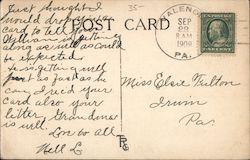 Just thought I
would drop
card to tell
getting
along as well as could
be expected.
is getting well
just as fast as he
can, I rec'd your
card also your
letter. Grandma
is well.
Love to all
Nell
35-
POST CARD
VALENCIA
SEP
8 AM
1909
PA.
Miss Elsie Fulton
Irwin
Pa.